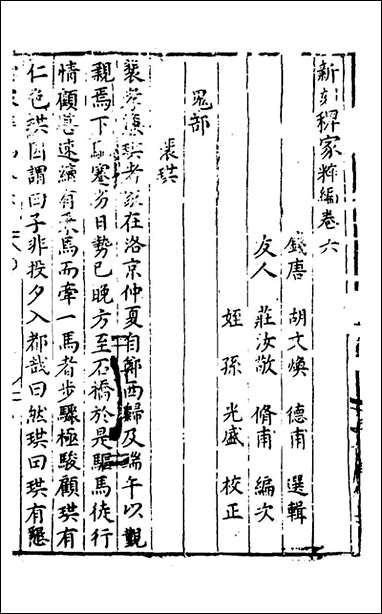 新刻稗家粹編卷六
錢唐 胡文煥 德甫 選輯
友人 莊汝敬 脩甫 編次
姪孫 光盛 校正
鬼部
裴珙
裴孝廉珙者家在洛京仲夏自鄭西歸及端午以覲
親焉下馬蹇劣日勢已晚方至石橋於是驅馬徒行
情顧甚速續有乘馬而牽一馬者步驟極駿顧珙有
仁色珙因謂曰子非投夕入都哉曰然珙曰珙有懇